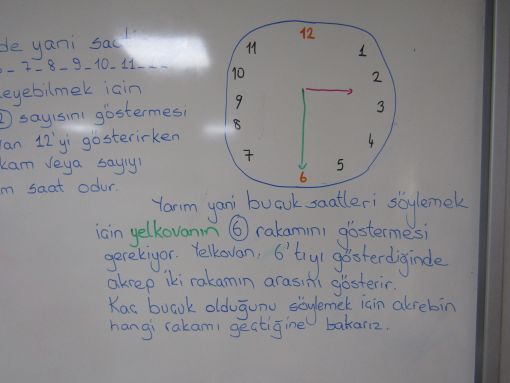 de yani saat
7-8-9-10-11-
leyebilmek için
sayısını göstermesi
van 12'yi gösterirken
kam veya sayıyı
m saat odur.
12
1
2
3
4
5
6
7
8
9
10
11
Yarım yani buçuk saatleri söylemek
için yelkovanın 6 rakamını göstermesi
gerekiyor. Yelkovan, 6'tıyı gösterdiğinde
akrep iki rakamın arasını gösterir.
Kaç buçuk olduğunu söylemek için akrebin
hangi rakamı geçtiğine bakarız.